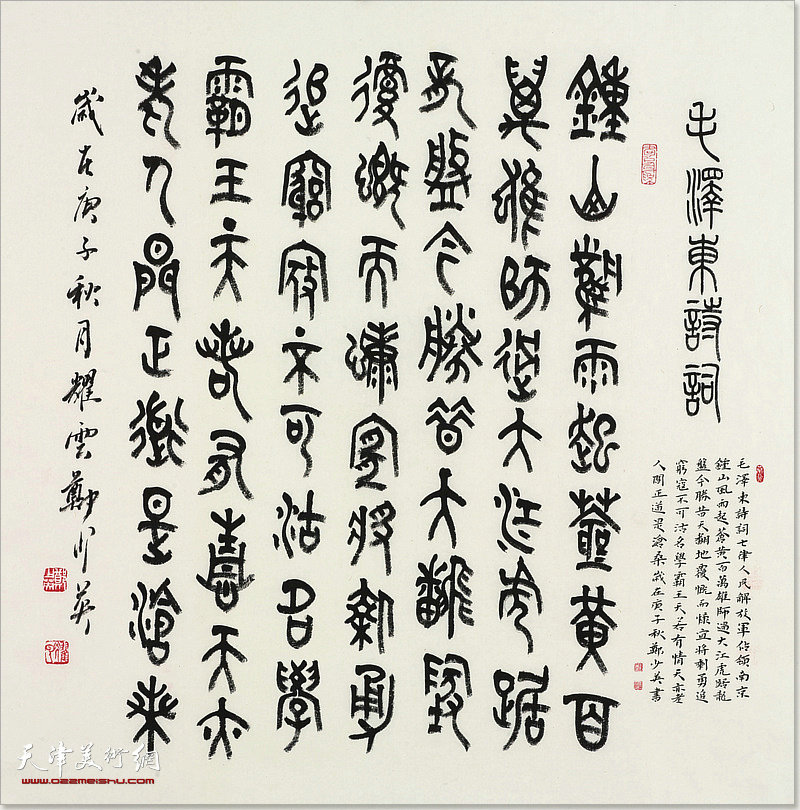 毛澤東詩詞
毛澤東詩詞七律人民解放軍佔領南京
鍾山風雨起蒼黃百萬雄師過大江虎踞龍
盤今勝昔天翻地覆慨而慷宜將剩勇追
窮寇不可沽名學霸王天若有情天亦老
人間正道是滄桑歲在庚子秋鄭少英書
鍾山風雨起蒼黃百
萬雄師過大江虎踞
龍盤今勝昔天翻地
覆慨而慷宜將剩勇
追窮寇不可沽名學
霸王天若有情天亦
老人間正道是滄桑
歲在庚子秋月耀雲鄭少英
天津美術網
www.022meishu.com